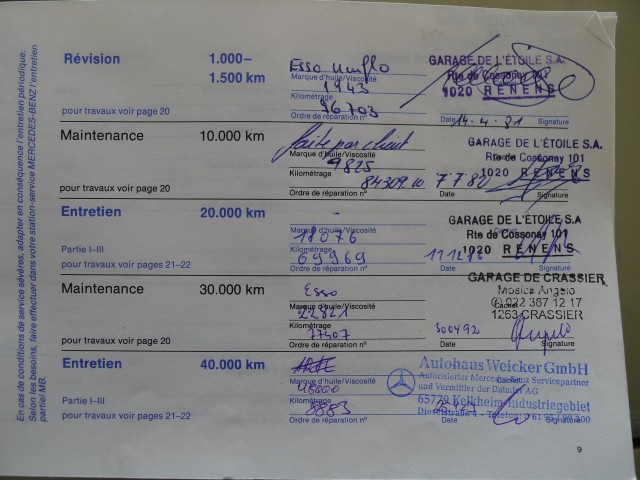 En cas de conditions de service sévères, adapter en conséquence l'entretien périodique.
Selon les besoins, faire effectuer dans votre station-service MERCEDES-BENZ l'entretien
partiel MB.
Révision 1.000–
1.500 km
pour travaux voir page 20
Esso Uniflo
Marque d'huile/Viscosité
1943
Kilométrage
96703
Ordre de réparation n°
GARAGE DE L'ÉTOILE S.A.
Rte de Cossonay 101
1020 RENENS
14-4-81
Date Signature
Maintenance 10.000 km
pour travaux voir page 20
faite par client
Marque d'huile/Viscosité
9825
Kilométrage
84309
Ordre de réparation n°
GARAGE DE L'ÉTOILE S.A.
Rte de Cossonay 101
1020 RENENS
7 7 82
Date Signature
Entretien 20.000 km
Partie I–III
pour travaux voir pages 21–22
-
Marque d'huile/Viscosité
18076
Kilométrage
69969
Ordre de réparation n°
GARAGE DE L'ÉTOILE S.A
Rte de Cossonay 101
1020 RENENS
Date Signature
Maintenance 30.000 km
pour travaux voir page 20
Esso
Marque d'huile/Viscosité
22821
Kilométrage
77407
Ordre de réparation n°
GARAGE DE CRASSIER
Mosica Angelo
Cachet
022 367 12 17
1263 CRASSIER
300492
Date Signature
Entretien 40.000 km
Partie I–III
pour travaux voir pages 21–22
Marque d'huile/Viscosité
Kilométrage
8883
Ordre de réparation n°
Autohaus Weicker GmbH
Autorisierter Mercedes-Benz Servicepartner
und Vermittler der Daimler AG
65779 Kelkheim-Industriegebiet
Date Signature
9